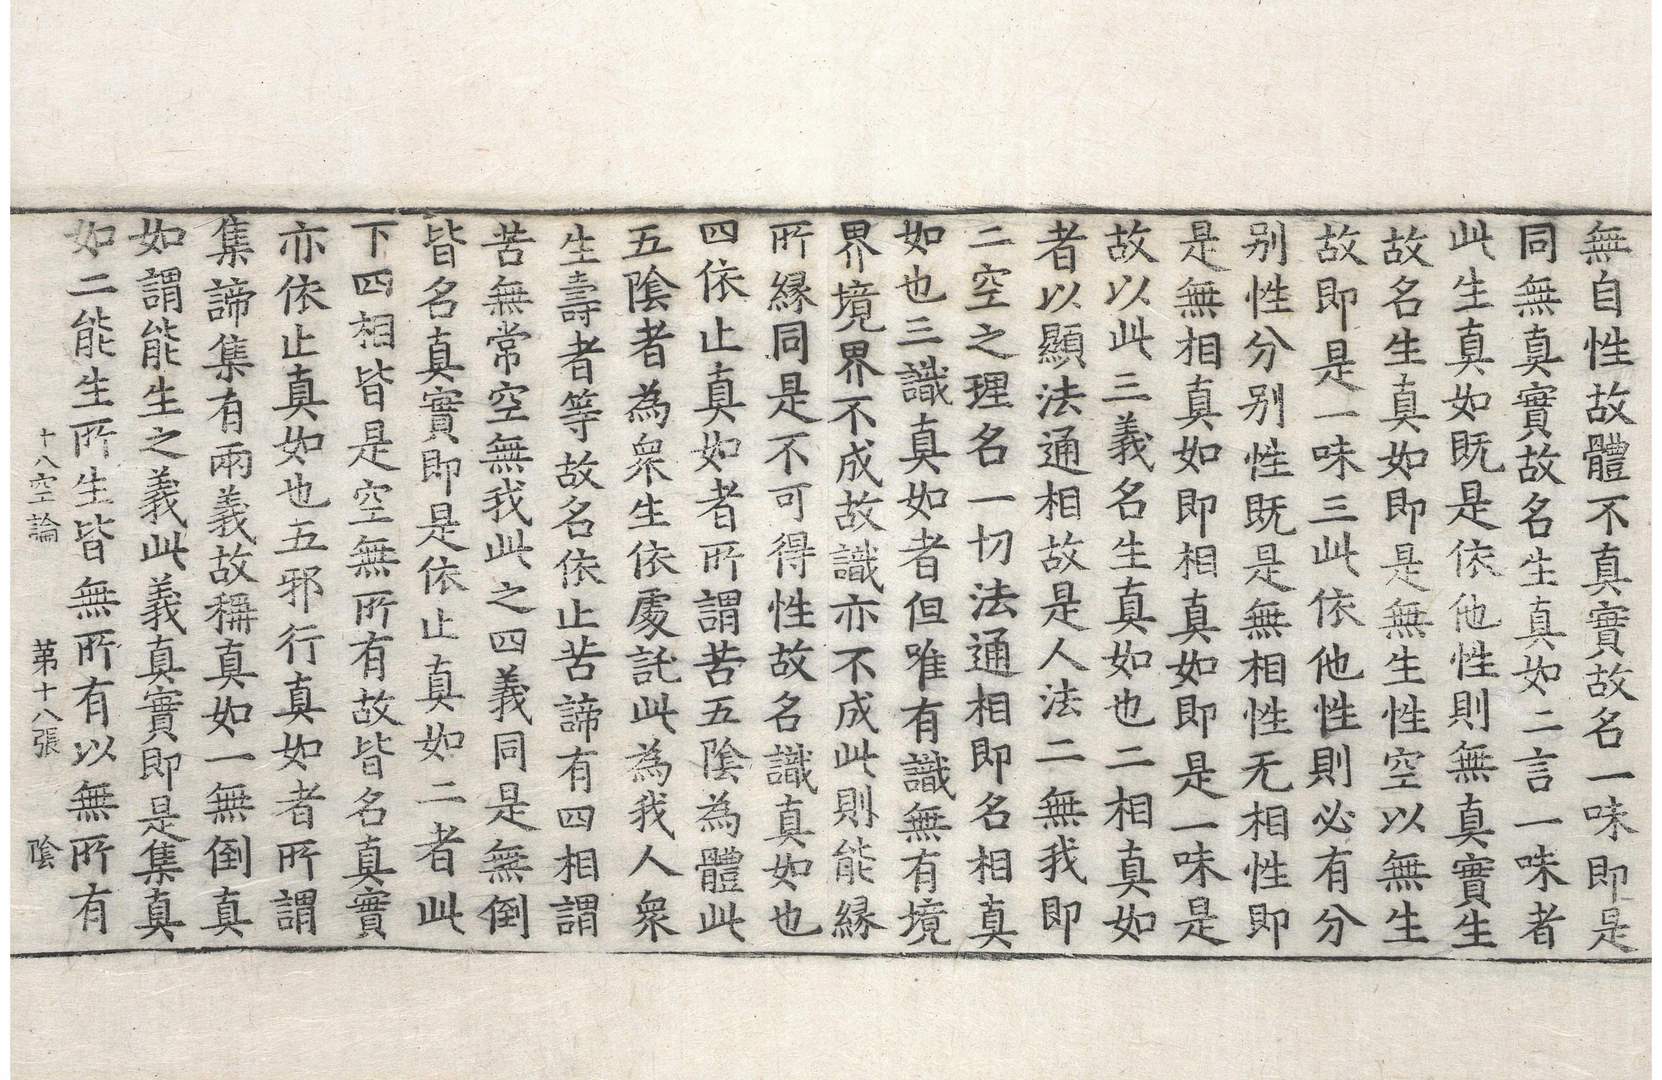 無自性故體不真實故名一味即是
同無真實故名生真如二言一味者
此生真如既是依他性則無真實生
故名生真如即是無生性空以無生
故即是一味三此依他性則必有分
别性分别性既是無相性无相性即
是無相真如即相真如即是一味是
故以此三義名生真如也二相真如
者以顯法通相故是人法二無我即
二空之理名一切法通相即名相真
如也三識真如者但唯有識無有境
界境界不成故識亦不成此則能緣
所緣同是不可得性故名識真如也
四依止真如者所謂苦五陰為體此
五陰者為衆生依處託此為我人衆
生壽者等故名依止苦諦有四相謂
苦無常空無我此之四義同是無倒
皆名真實即是依止真如二者此
下四相皆是空無所有故皆名真實
亦依止真如也五邪行真如者所謂
集諦集有兩義故稱真如一無倒真
如謂能生之義此義真實即是集真
如二能生所生皆無所有以無所有
十八空論 第十八張 陰